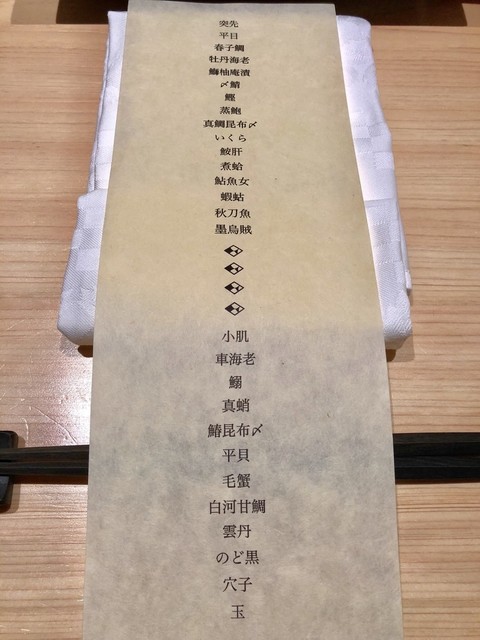 突先
平目
春子鯛
牡丹海老
鰤柚庵漬
〆鯖
鰹
蒸鮑
真鯛昆布〆
いくら
鮟肝
煮蛤
鮎魚女
蝦蛄
秋刀魚
墨烏賊
小肌
車海老
鰯
真蛸
鰆昆布〆
平貝
毛蟹
白河甘鯛
雲丹
のど黒
穴子
玉